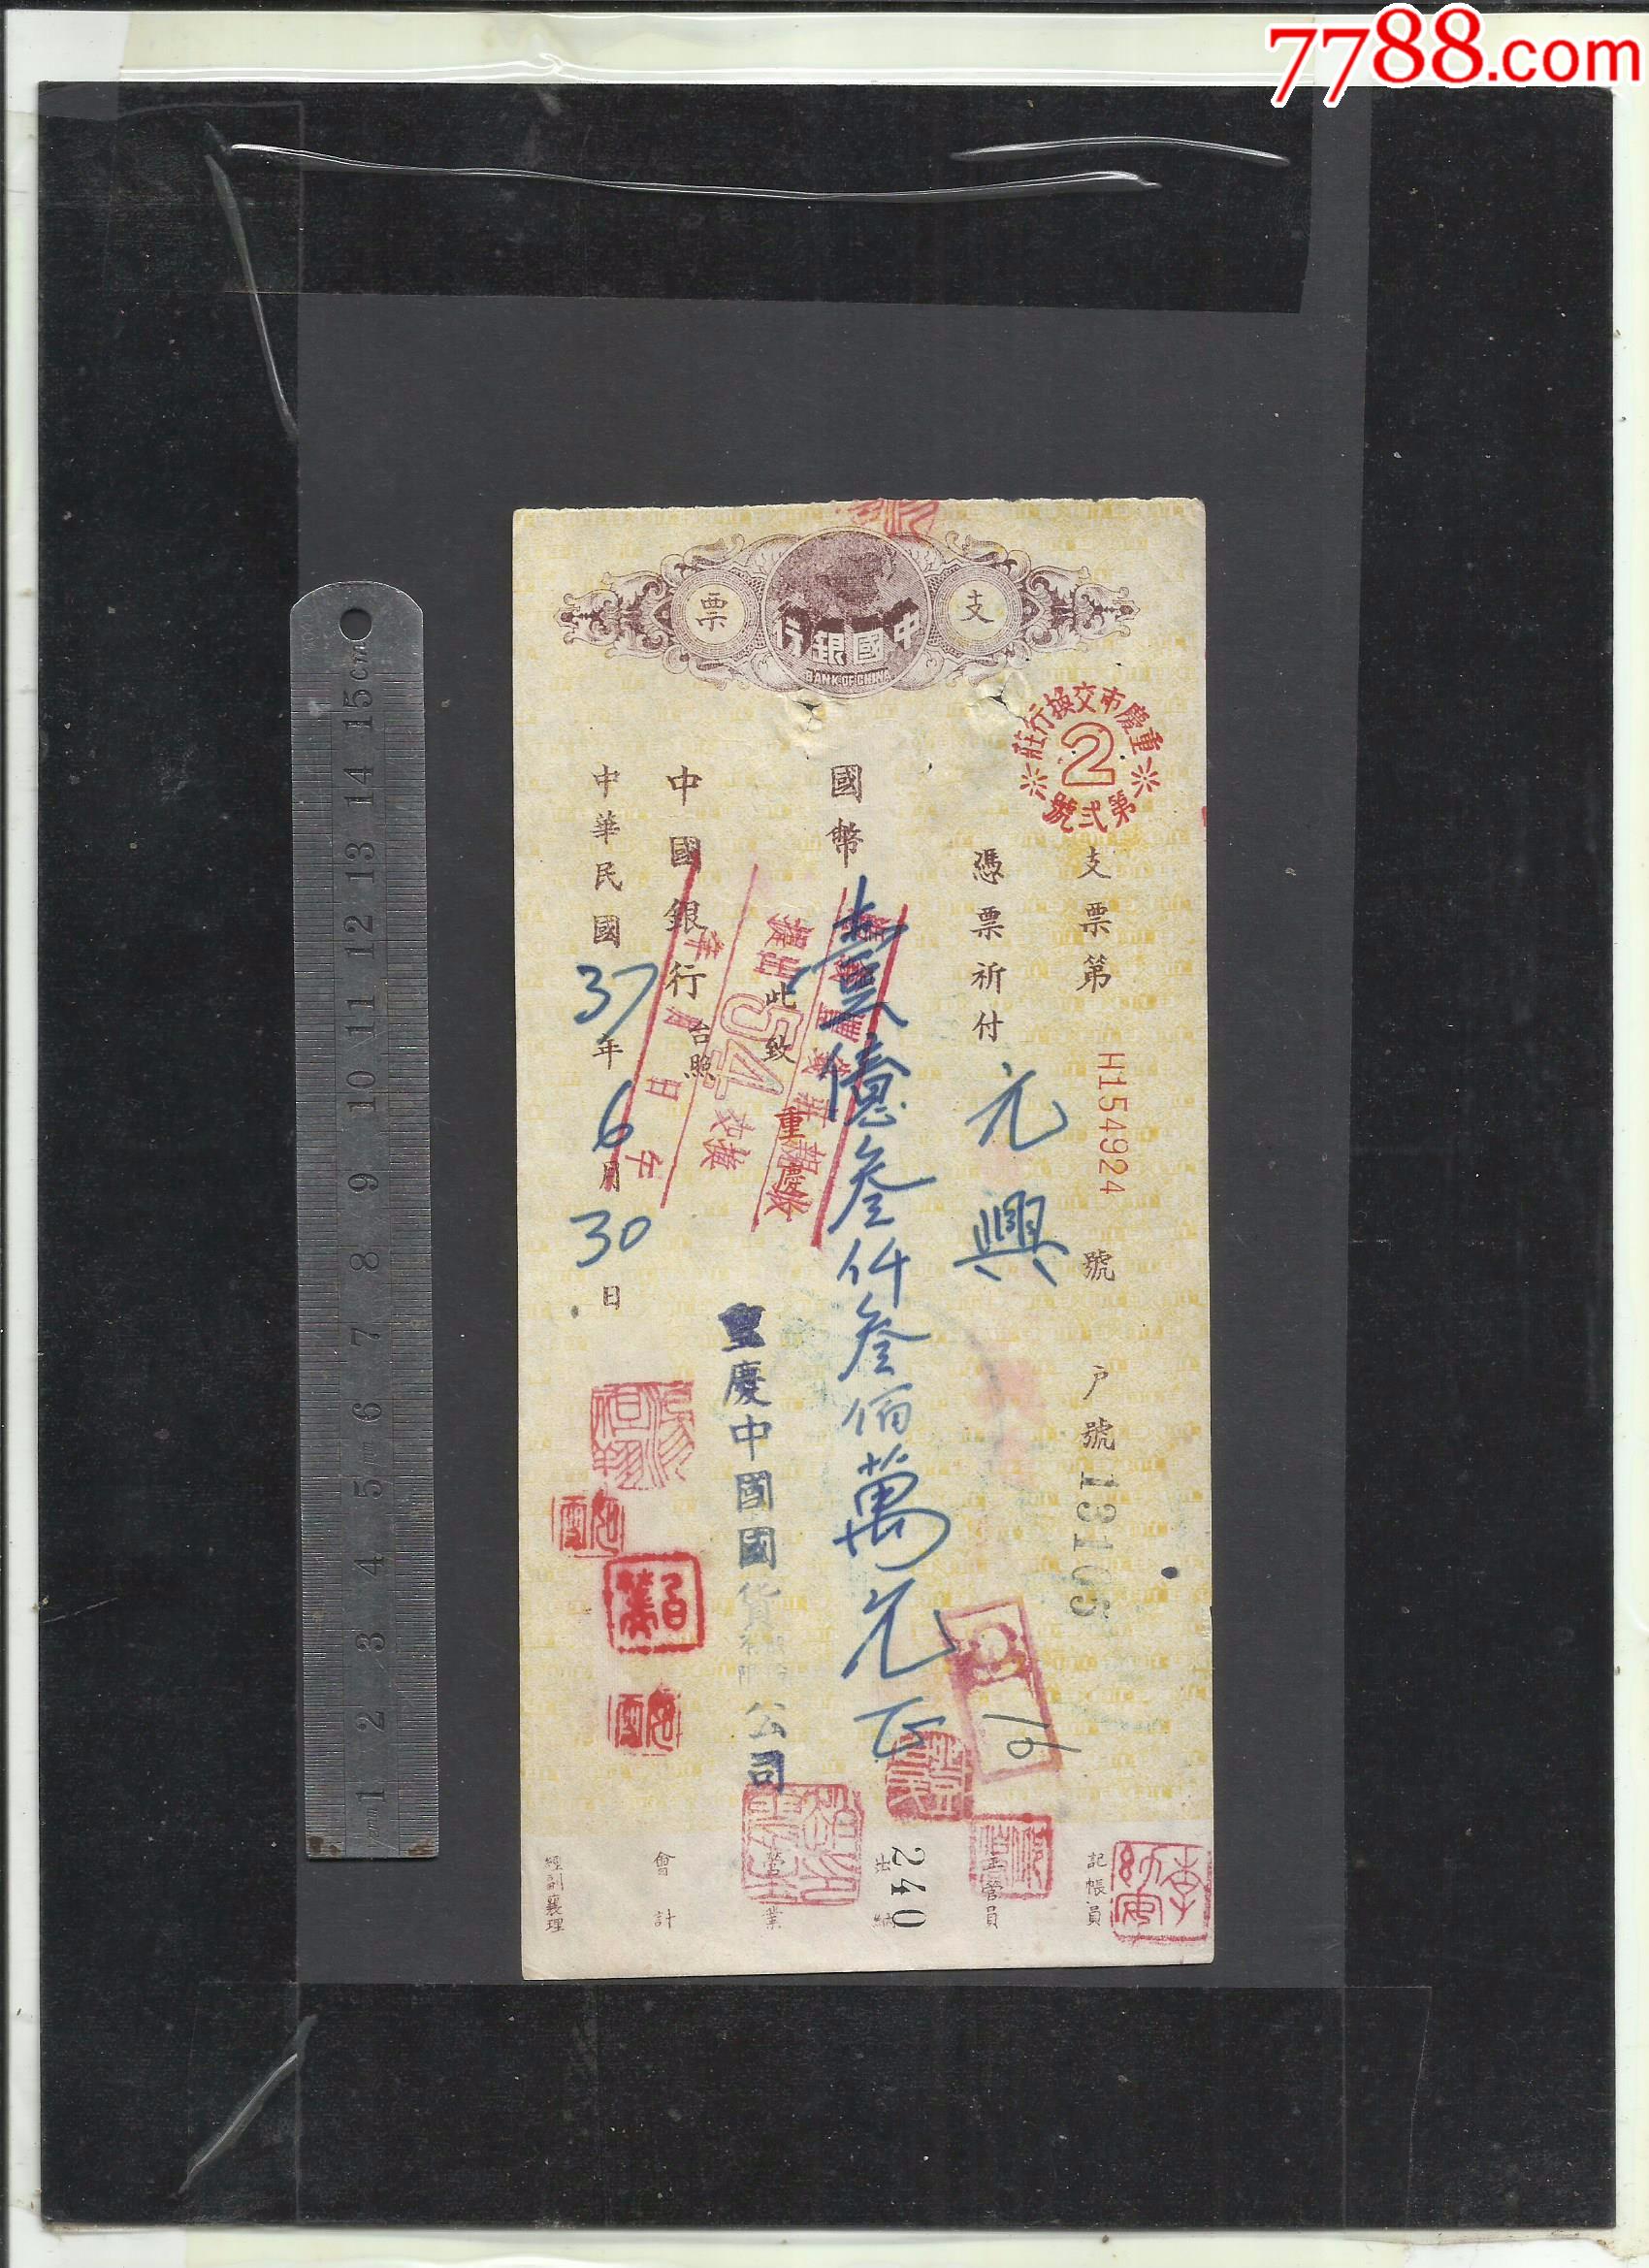 7788.com
支 票
中國銀行
BANK OF CHINA
重慶市交換行莊
2
第弍號
支票第 H154924 號 戶號 13105
憑票祈付 元興
國幣 壹億叁仟叁佰萬元正
此致
中國銀行 台照
重慶
提出 54 交換
年 月 日 午
重慶中國國貨 公司
中華民國 37 年 6 月 30 日
16
240
記帳員
主管員
營業
會計
經副襄理
15cm 14 13 12 11 10 9 8 7 6 5 4 3 2 1